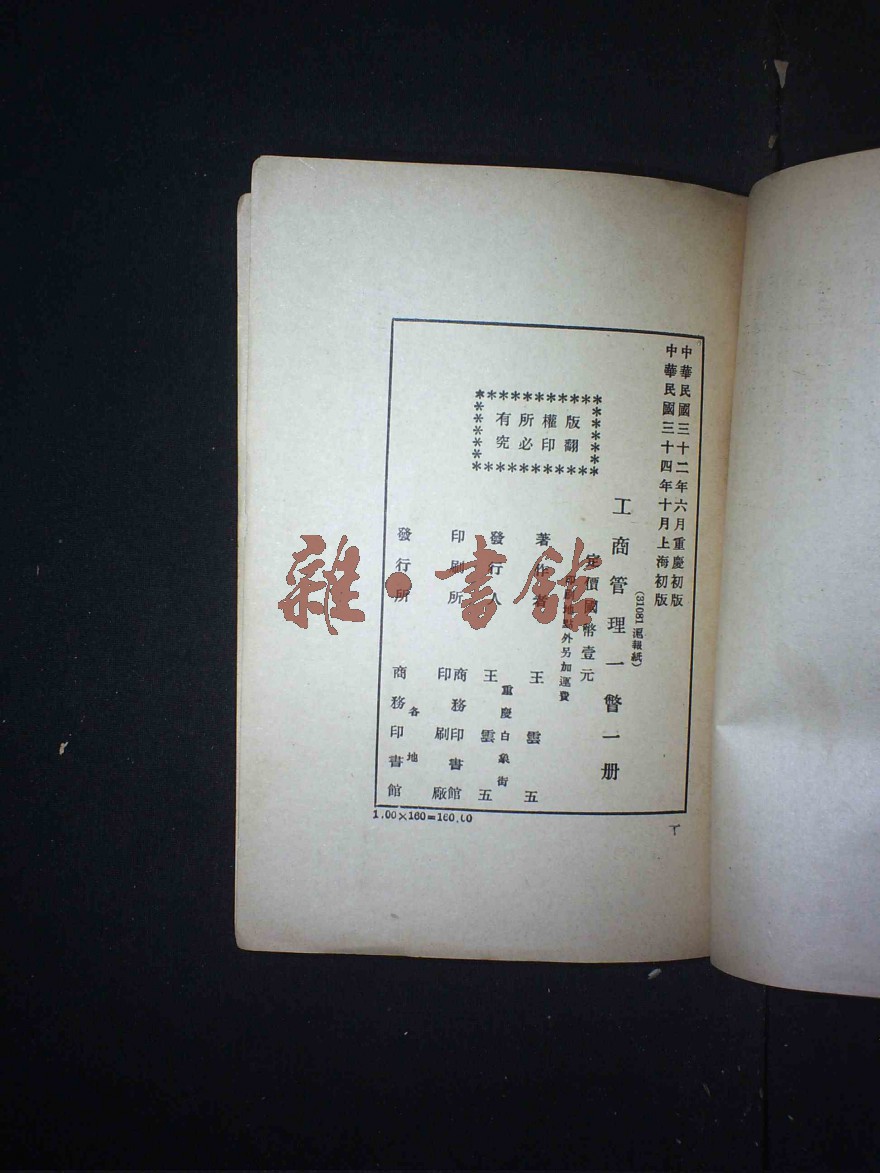 中華民國三十二年六月重慶初版
中華民國三十四年十月上海初版
(31081 滬報紙)
工商管理一瞥一册
定價國幣壹元
印刷地點外另加運費
版權所有
翻印必究
著作者 王雲五
重慶白象街
發行人 王雲五
印刷所 商務印書館
印刷廠
發行所 商務印書館
各地
1.00×160=160.00
雜·書館